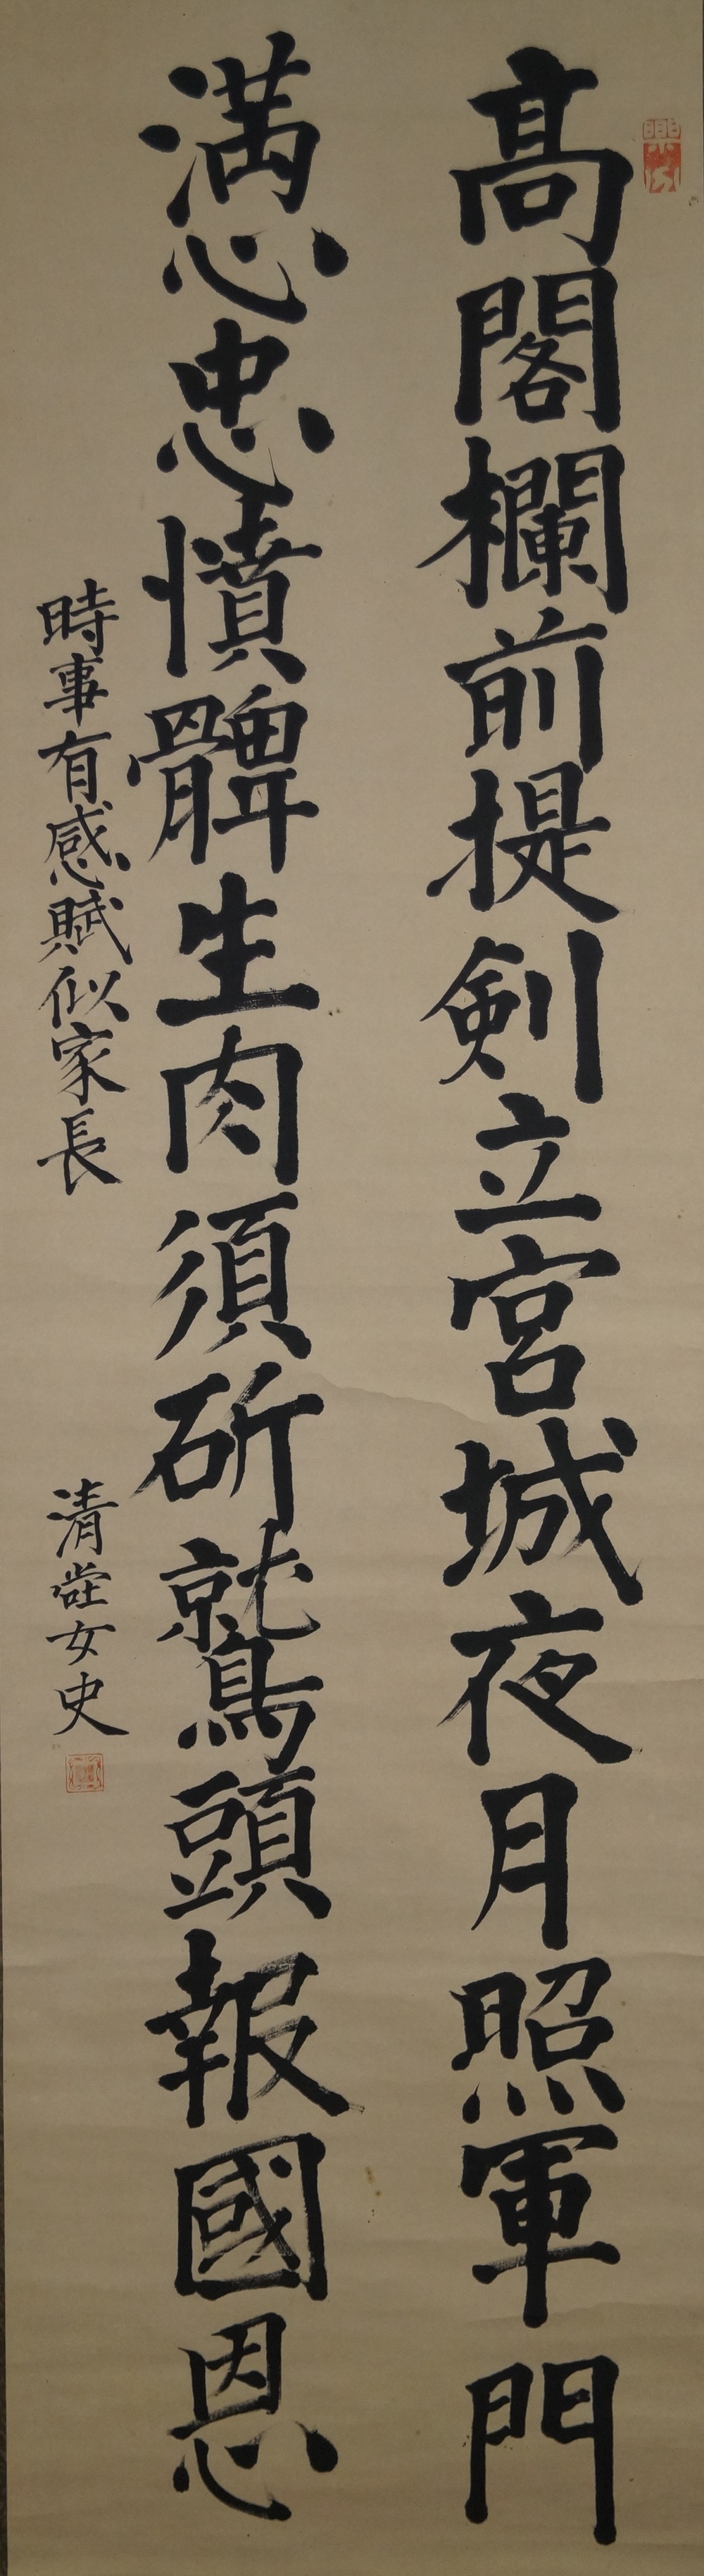 高閣欄前提剣立宮城夜月照軍門
満心忠憤髀生肉須斫鷲頭報國恩
時事有感賦似家長
清女史